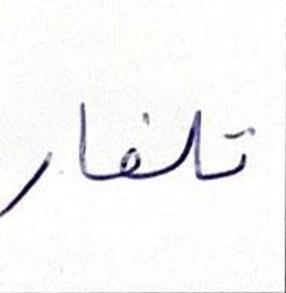 تلفار